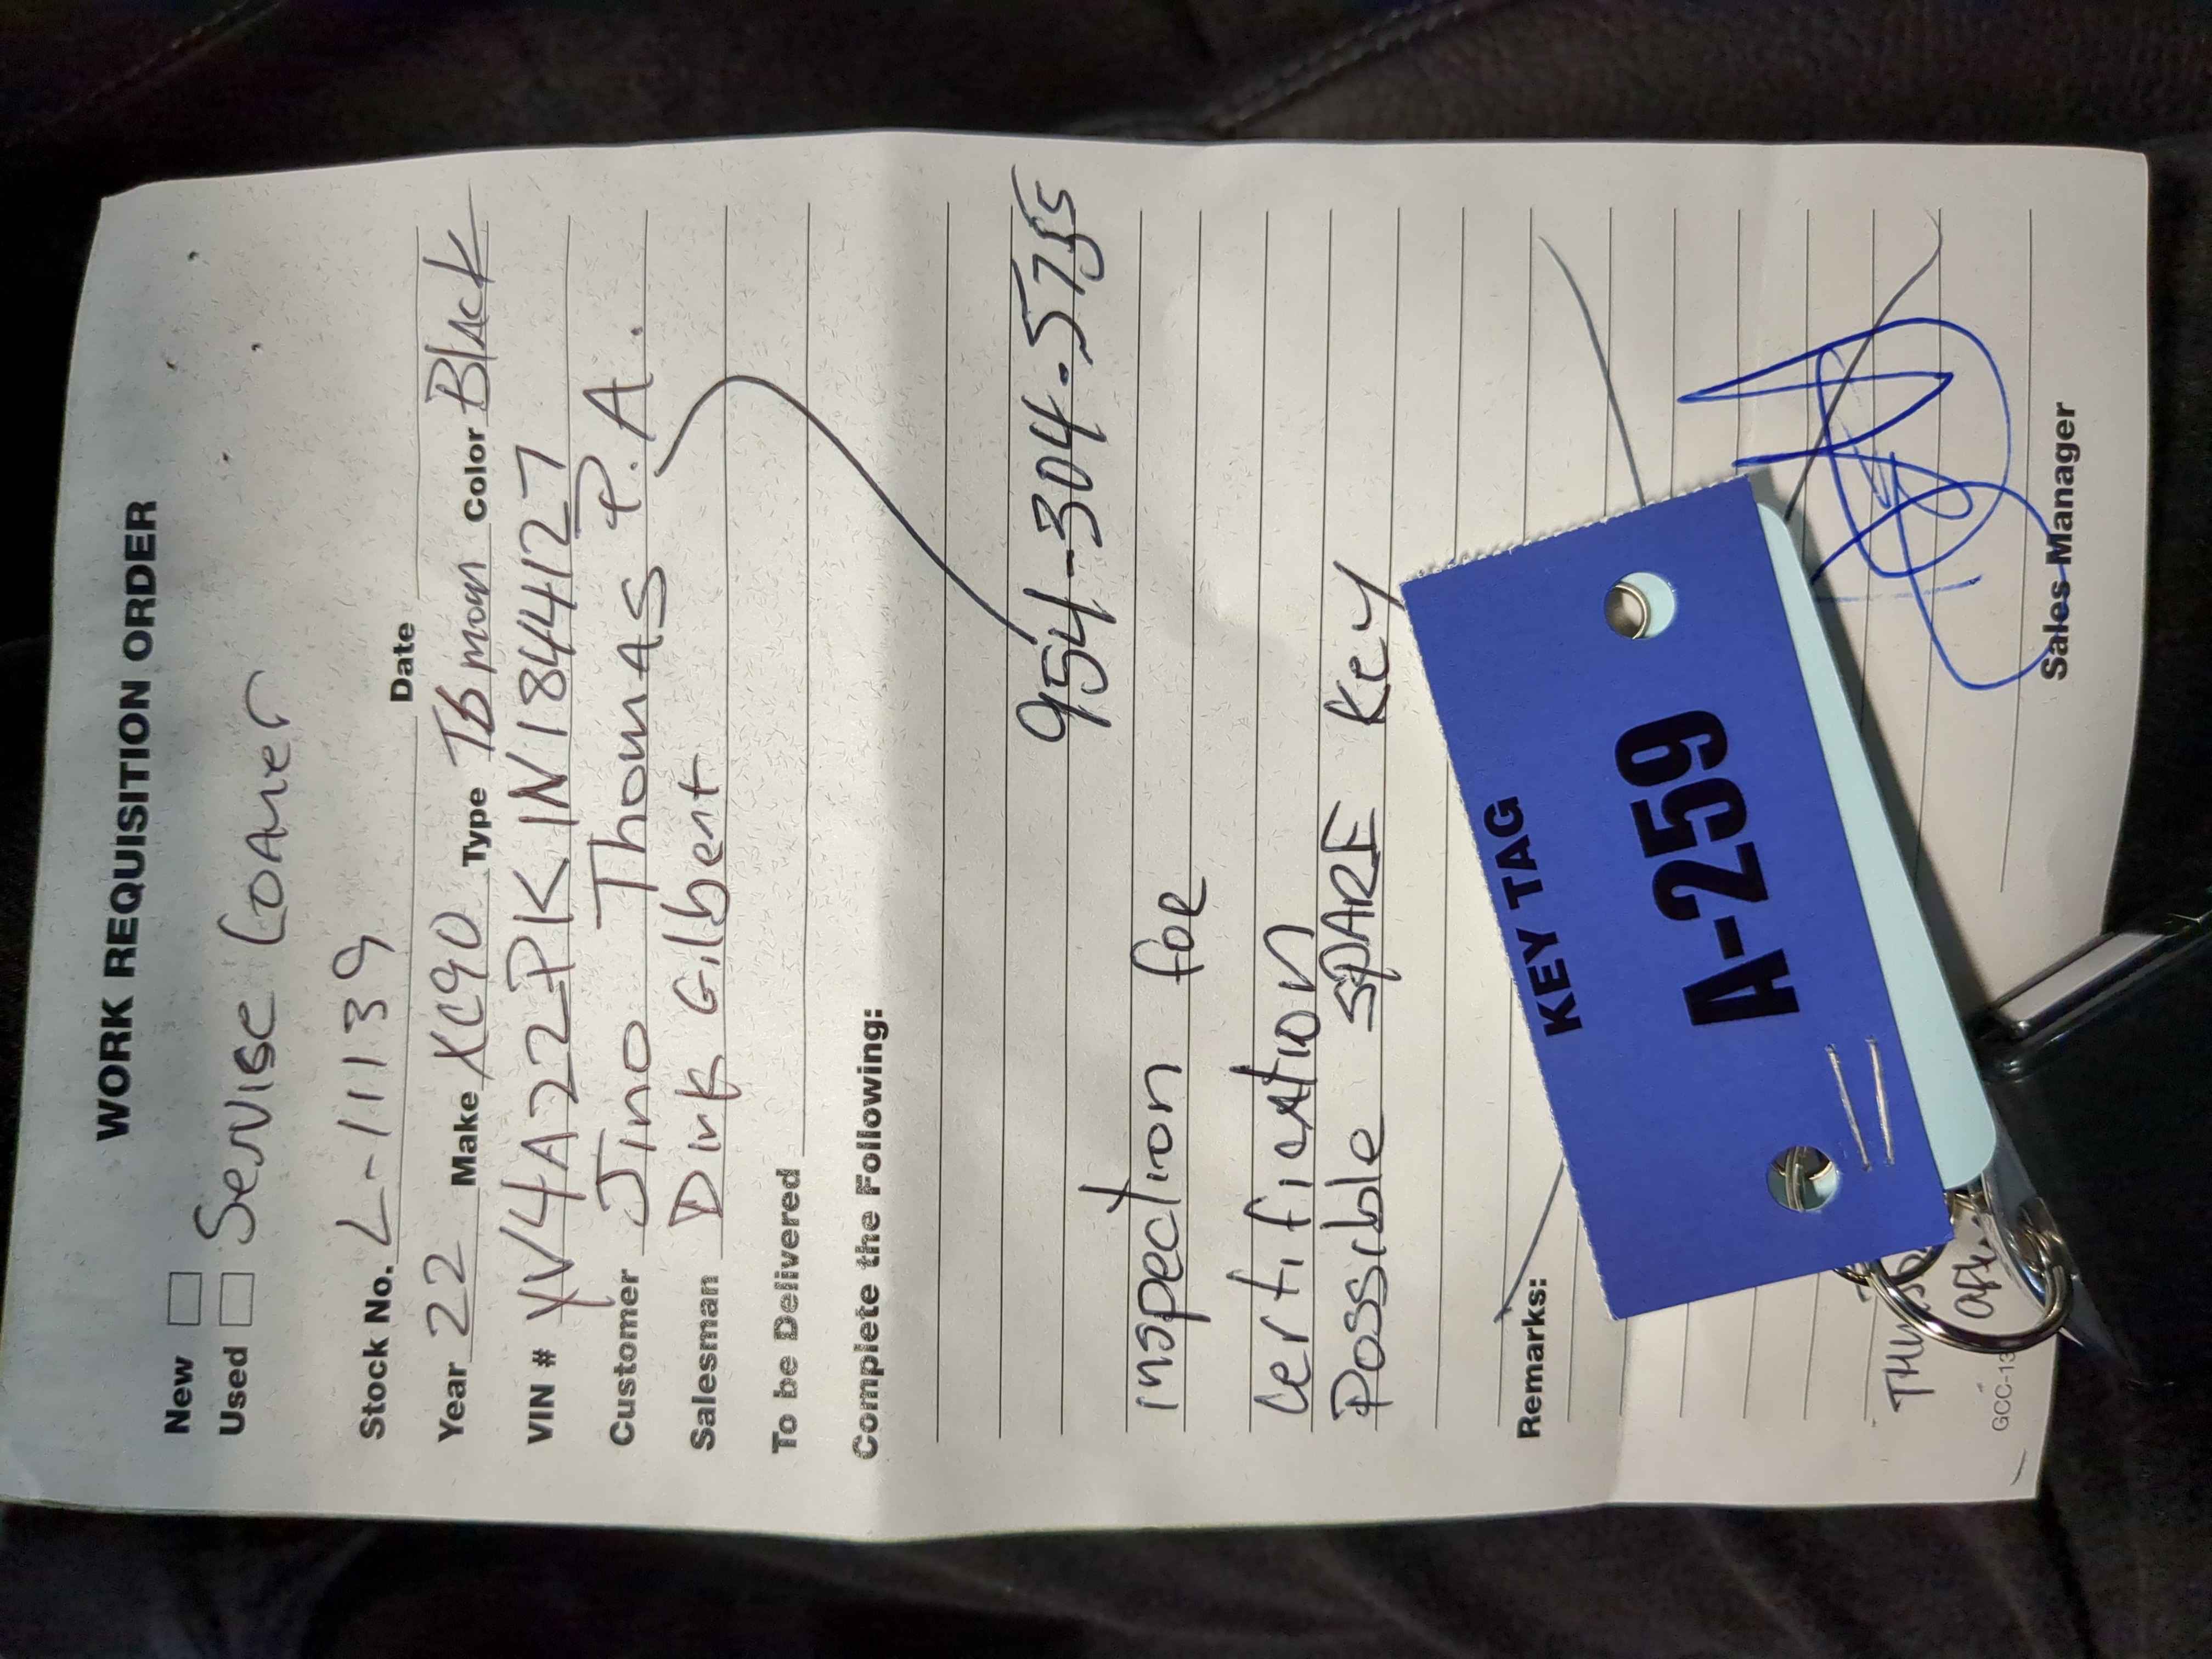 WORK REQUISITION ORDER
New
Used Servise Loaner
Stock No. L-11139
Date
Year 22 Make XC90 Type T6 mom Color Black
VIN # YV4A22PK1N1844127
Customer Jino Thomas P.A.
Salesman Dirk Gilbert
To be Delivered
Complete the Following:
inspection for
certification
Possible SPARE Key
Remarks:
KEY TAG
A-259
GCC-13
Sales Manager